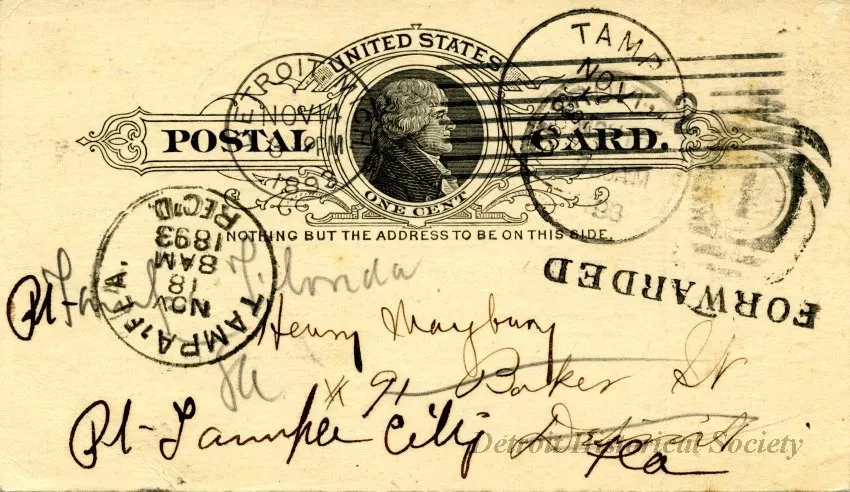 UNITED STATES
POSTAL CARD.
ONE CENT
NOTHING BUT THE ADDRESS TO BE ON THIS SIDE.
DETROIT, MICH.
NOV 14
PM
1893
TAMP
NOV
AM
93
TAMPA, FLA.
NOV
18
8 AM
1893
REC'D.
FORWARDED
Pt- Tampa Florida
Henry Maybury
91 Baker St
Detroit
Pt- Tampa City
Fla
Detroit Historical Society